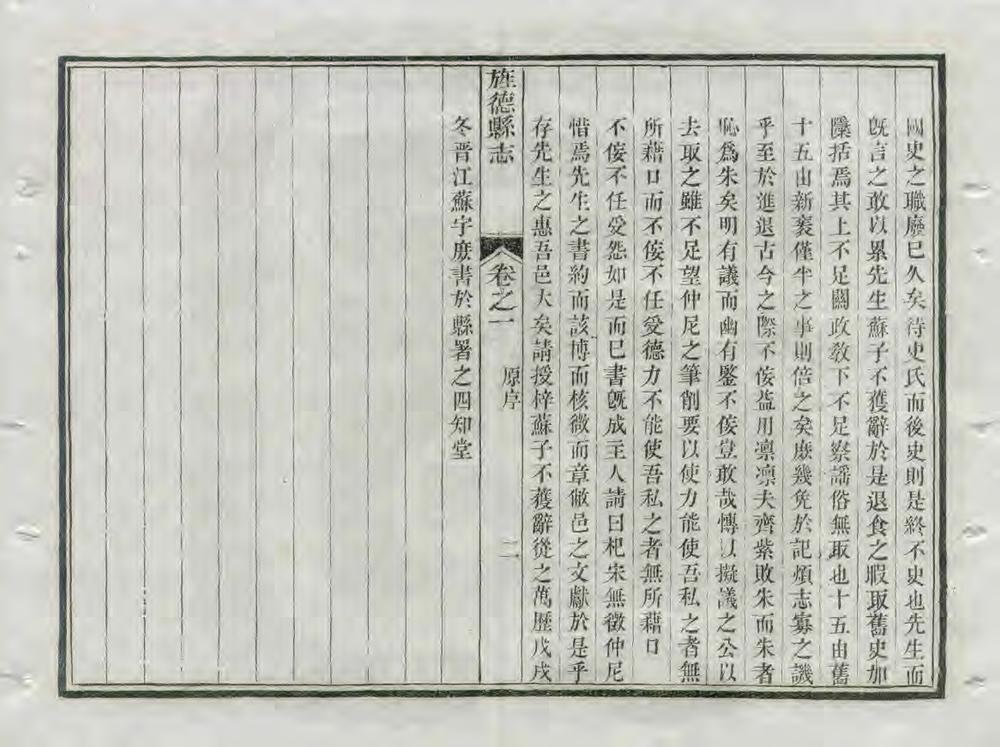 國史之職廢已久矣待史氏而後史則是終不史也先生而
既言之敢以累先生蘇子不獲辭於是退食之暇取舊史加
檃括焉其上不足關政敎下不足察謡俗無取也十五由舊
十五由新褒僅半之事則倍之矣庶幾免於記煩志寡之譏
乎至於進退古今之際不佞益用凛凛夫齊紫敗朱而朱者
恥爲朱矣明有議而幽有鑒不佞豈敢哉慱以擬議之公以
去取之雖不足望仲尼之筆削要以使力能使吾私之者無
所藉口而不佞不任受德力不能使吾私之者無所藉口
不佞不任受怨如是而已書旣成主人請曰杞宋無徵仲尼
惜焉先生之書約而該博而核微而章敝邑之文獻於是乎
存先生之惠吾邑大矣請授梓蘇子不獲辭從之萬歷戊戌
旌德縣志
卷之一
原序
二
冬晋江蘇宇庶書於縣署之四知堂